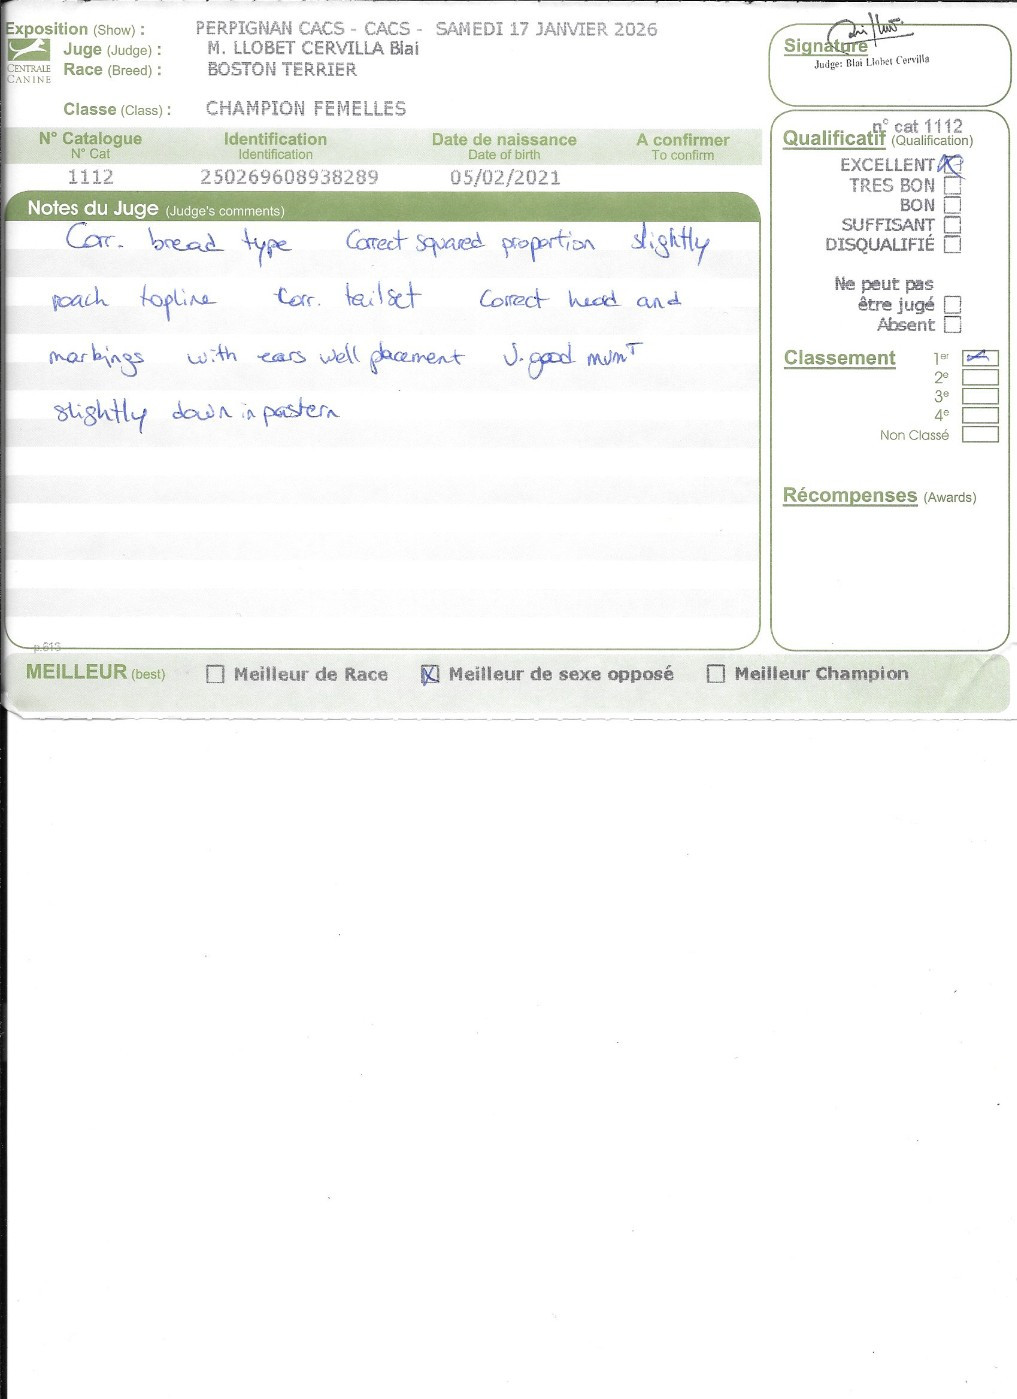 Exposition (Show) : PERPIGNAN CACS - CACS - SAMEDI 17 JANVIER 2026
Juge (Judge) : M. LLOBET CERVILLA Blai
Race (Breed) : BOSTON TERRIER
CENTRALE
CANINE
Classe (Class) : CHAMPION FEMELLES
Signature
Judge: Blai Llobet Cervilla
N° Catalogue Identification Date de naissance A confirmer
N° Cat Identification Date of birth To confirm
1112 250269608938289 05/02/2021
Notes du Juge (Judge's comments)
Corr. bread type Correct squared proportion slightly
roach topline Corr. tailset Correct head and
markings with ears well placement V. good mvmT
slightly down in pastern
n° cat 1112
Qualificatif (Qualification)
EXCELLENT
TRES BON
BON
SUFFISANT
DISQUALIFIÉ
Ne peut pas
être jugé
Absent
Classement 1er
2e
3e
4e
Non Classé
Récompenses (Awards)
p.613
MEILLEUR (best) Meilleur de Race Meilleur de sexe opposé Meilleur Champion